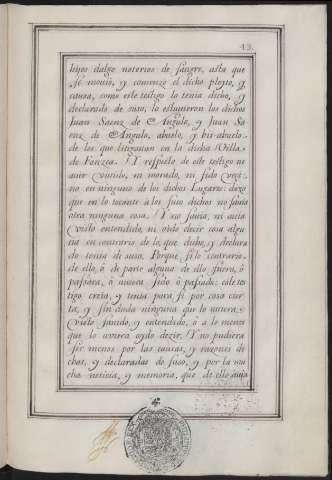 13.
hijos dalgo notorios de sangre, asta que
se movio, y comenzo el dicho pleyto, y
causa, como este testigo lo tenia dicho, y
declarado de suso, lo estuvieron los dichos
Juan Saenz de Angulo, y Juan Sa
enz de Angulo, abuelo, y bis-abuelo
de los que litigavan en la dicha Villa
de Fonzea. Y respecto de este testigo no
aver vivido, ni morado, ni sido veçi-
no en ninguno de los dichos Lugares: dixo
que en lo tocante à los suso dichos no savia
otra ninguna cosa. Y no savia, ni avia
visto entendido, ni oido decir cosa algu
na en contrario de lo que dicho, y declara
do tenia de suso. Porque si lo contrario
de ello, ò de parte alguna de ello fuera, ò
passara, ò uviera sido, ò passado: este tes
tigo creia, y tenia para si por cosa cier
ta, y sin duda ninguna que lo uviera
visto savido, y entendido, ò a lo menos
que lo uviera oydo dezir. Y no pudiera
ser menos por las causas, y razones di
chas, y declaradas de suso, y por la mu
cha noticia, y memoria, que de ello avia